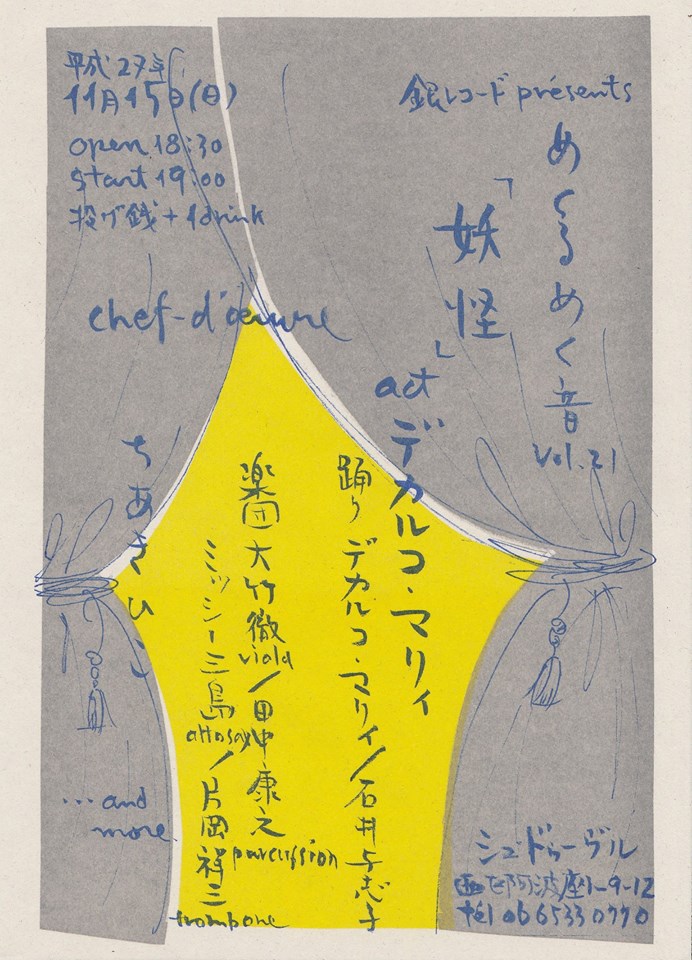 平成27年
11月15日(日)
open 18:30
start 19:00
投げ銭+1drink
chef-d'œuvre
銀レコード présents
めくるめく音
vol.21
「妖怪」
act デカルコ・マリィ
踊り デカルコ・マリィ/石井与志子
楽団 大竹徹 viola/田中康之 parcussion
ミッシー三島 altosax/片岡祥三 trombone
ちあきひこ
...and
more.
シェ・ドゥーヴル
西区阿波座1-9-12
tél 06 6533 0770